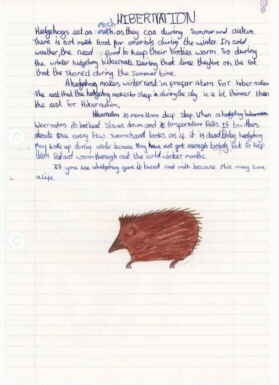 8
HIBERNATION
Hedgehogs eat as much as they can during summer and autumn
There is not much food for animals during the winter. In cold
weather, the need food to keep their bodies warm. So during
the winter hedgehog hibernate. During that time they live on the fat
that the stored during the summer time.
A hedgehog makes winter nest in proper for hibernation
the nest that the hedgehog makes to sleep in during the day is a bit thinner than
the nest for hibernation.
Hibernation is more than deep sleep. When a hedgehog hibernates
its heartbeat slows down and its temperature falls. It
breaths once every few and looks as if it is dead. Baby hedgehog
May wake up during winter because they have not got enough body fat to keep
them warm throughout the cold winter months.
If you see a hedgehog give it bread and milk because this may save
a life.